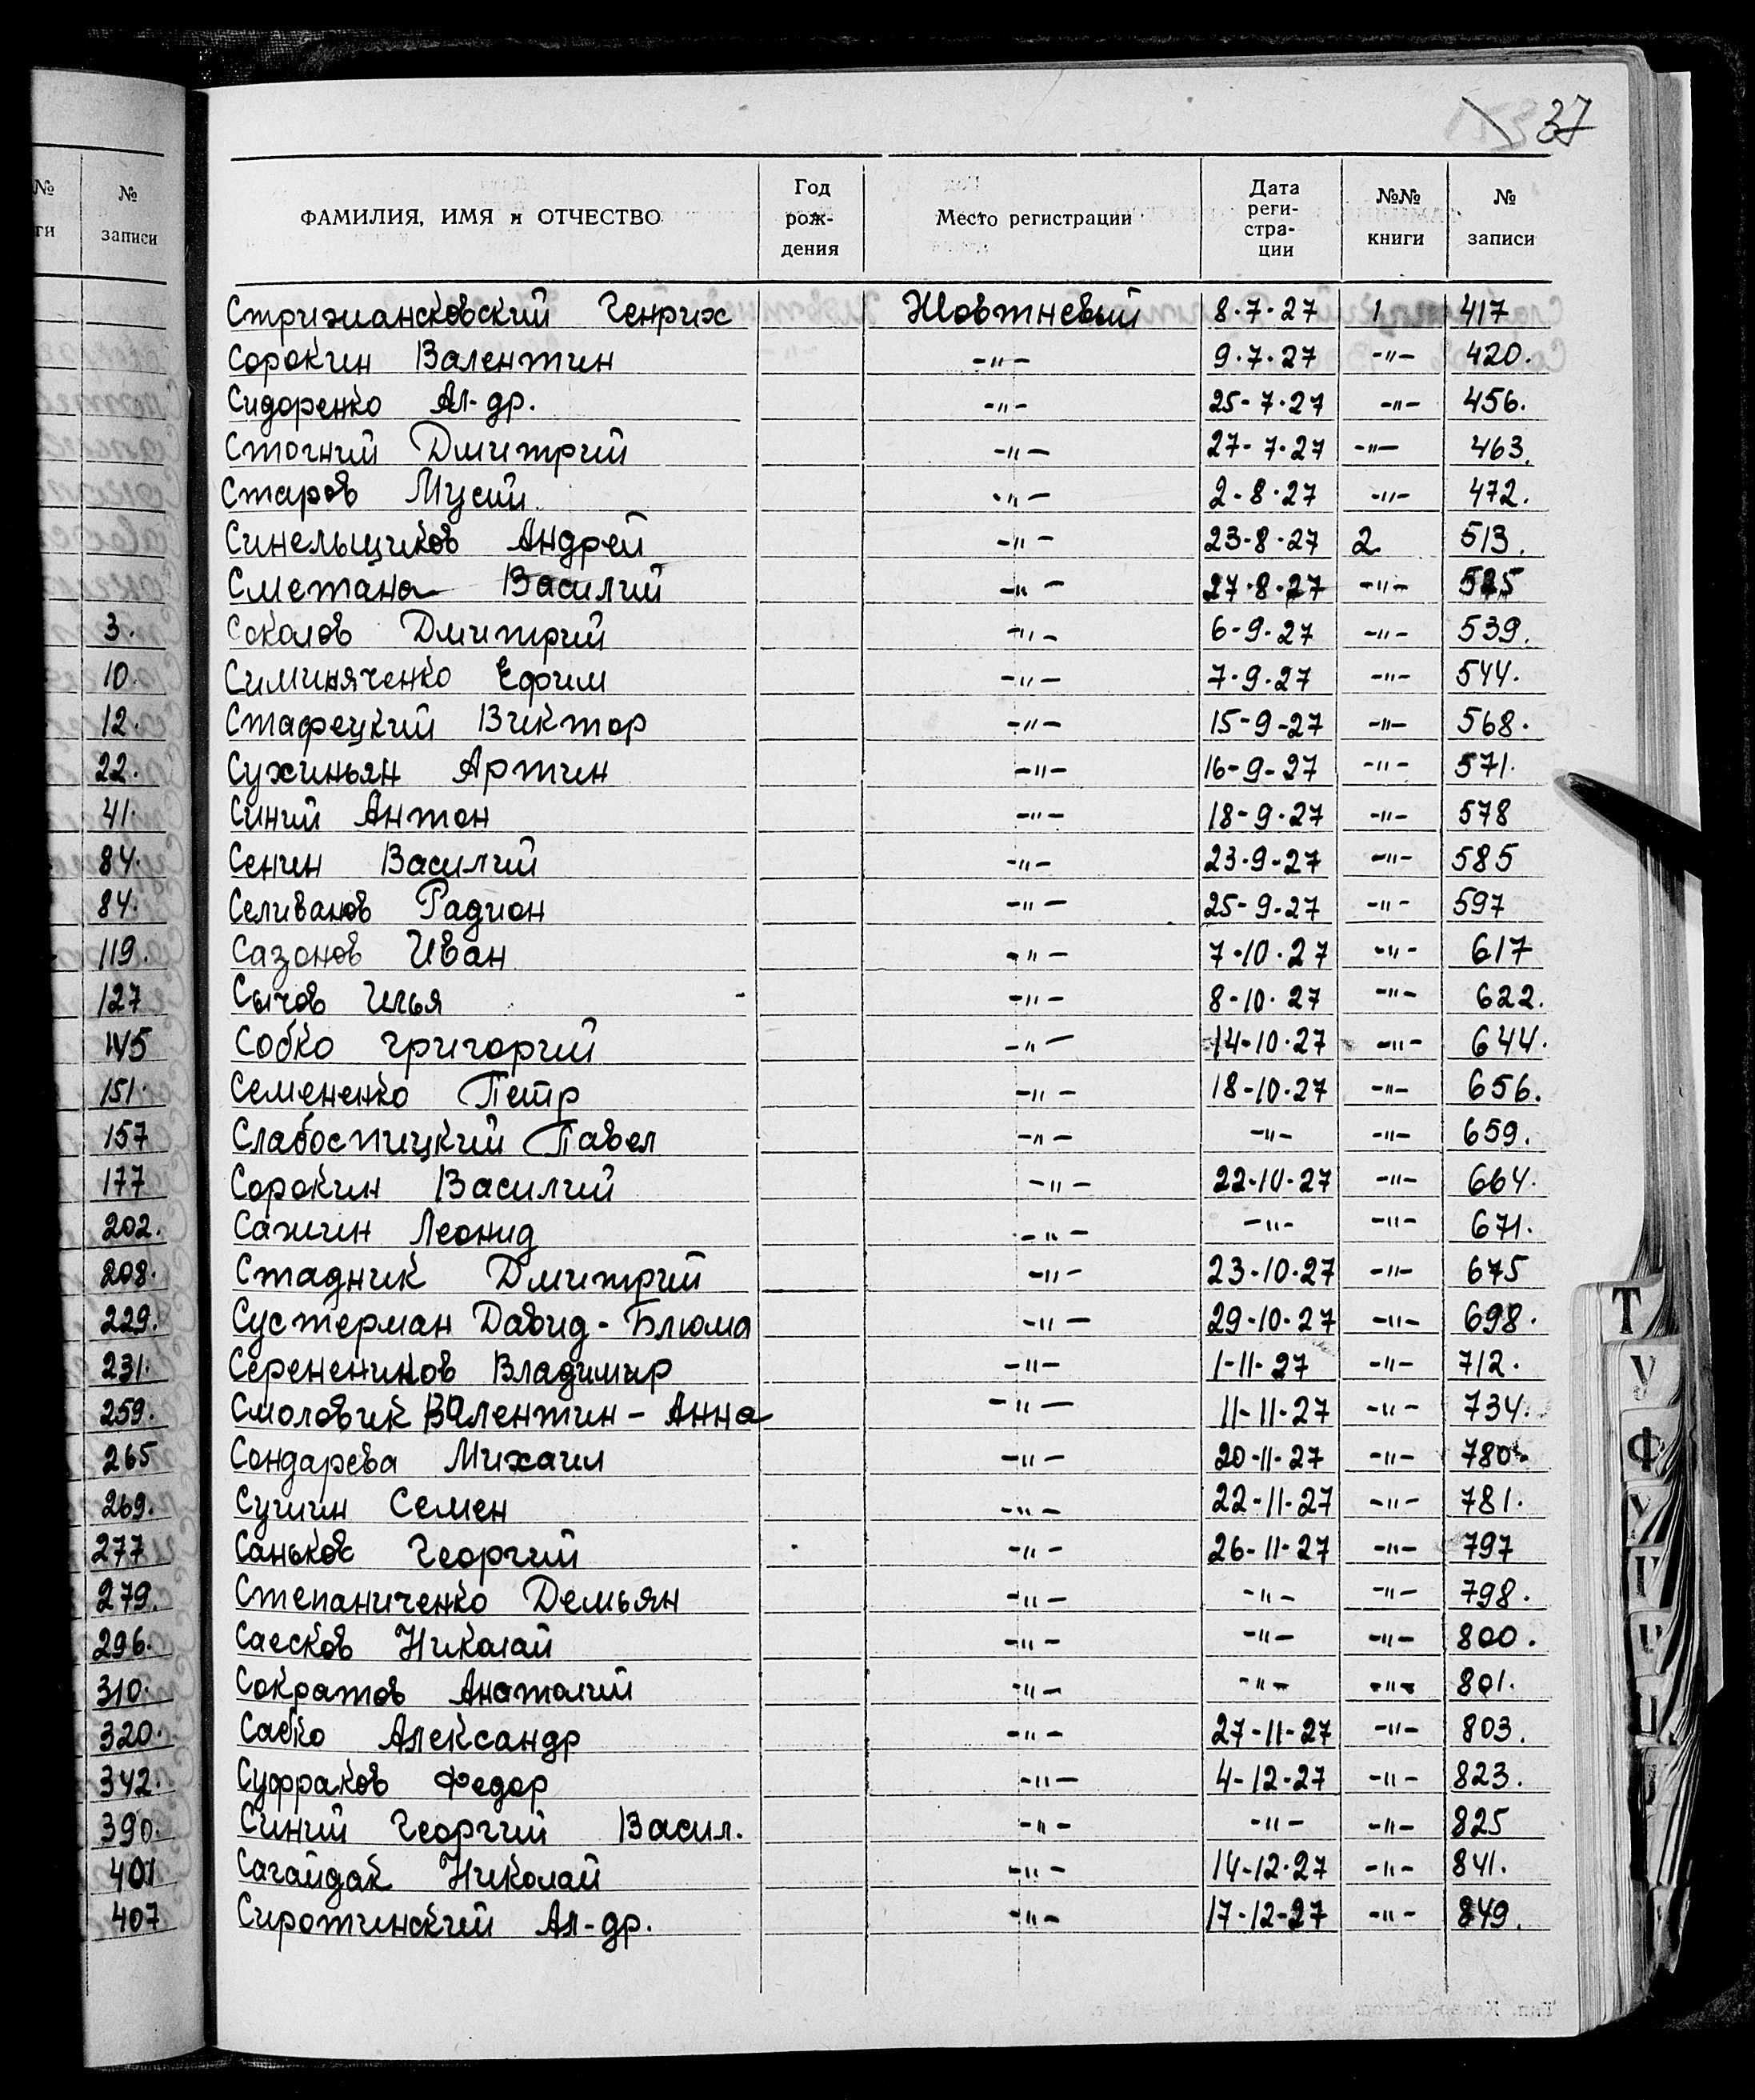 37
№
ги
№
записи
3.
10.
12.
22.
41.
84.
84.
119.
127
145
151.
157
177
202.
208.
229.
231.
259.
265
269.
277
279.
296.
310.
320.
342.
390.
401
407
ФАМИЛИЯ, ИМЯ и ОТЧЕСТВО Год рож- дения Место регистрации Дата реги- стра- ции №№ книги № записи
Стрижиансковский Генрих Жовтневый 8.7.27 1 417
Сорокин Валентин -"- 9.7.27 -"- 420.
Сидоренко Ал-др. -"- 25-7.27 -"- 456.
Стогний Дмитрий -"- 27-7.27 -"- 463.
Старов Мусий -"- 2-8.27 -"- 472.
Синельщиков Андрей -"- 23-8-27 2 513.
Сметана Василий -"- 27.8.27 -"- 525
Соколов Дмитрий -"- 6-9.27 -"- 539.
Симиняченко Ефим -"- 7-9.27 -"- 544.
Стафецкий Виктор -"- 15-9-27 -"- 568.
Сухиньян Артин -"- 16-9-27 -"- 571.
Синий Антон -"- 18-9.27 -"- 578
Сенин Василий -"- 23-9-27 -"- 585
Селиванов Радион -"- 25-9.27 -"- 597
Сазонов Иван -"- 7-10.27 -"- 617
Сычов Илья -"- 8-10.27 -"- 622.
Собко Григорий -"- 14-10.27 -"- 644.
Семененко Петр -"- 18-10.27 -"- 656.
Слабоспицкий Павел -"- -"- -"- 659.
Сорокин Василий -"- 22-10-27 -"- 664.
Сажин Леонид -"- -"- -"- 671.
Стадник Дмитрий -"- 23-10.27 -"- 675
Сустерман Давид - Блюма -"- 29-10-27 -"- 698.
Серененинов Владимир -"- 1-11-27 -"- 712.
Смоловик Валентин - Анна -"- 11-11-27 -"- 734.
Сондарева Михаил -"- 20-11-27 -"- 780.
Сушин Семен -"- 22-11-27 -"- 781.
Саньков Георгий -"- 26-11-27 -"- 797
Степаниченко Демьян -"- -"- -"- 798.
Саесков Николай -"- -"- -"- 800.
Сократов Анатолий -"- -"- -"- 801.
Сабко Александр -"- 27-11-27 -"- 803.
Суфраков Федор -"- 4-12-27 -"- 823.
Синий Георгий Васил. -"- -"- -"- 825
Сагайдак Николай -"- 14-12-27 -"- 841.
Сиротинский Ал-др. -"- 17-12-27 -"- 849.
Т
У
Ф